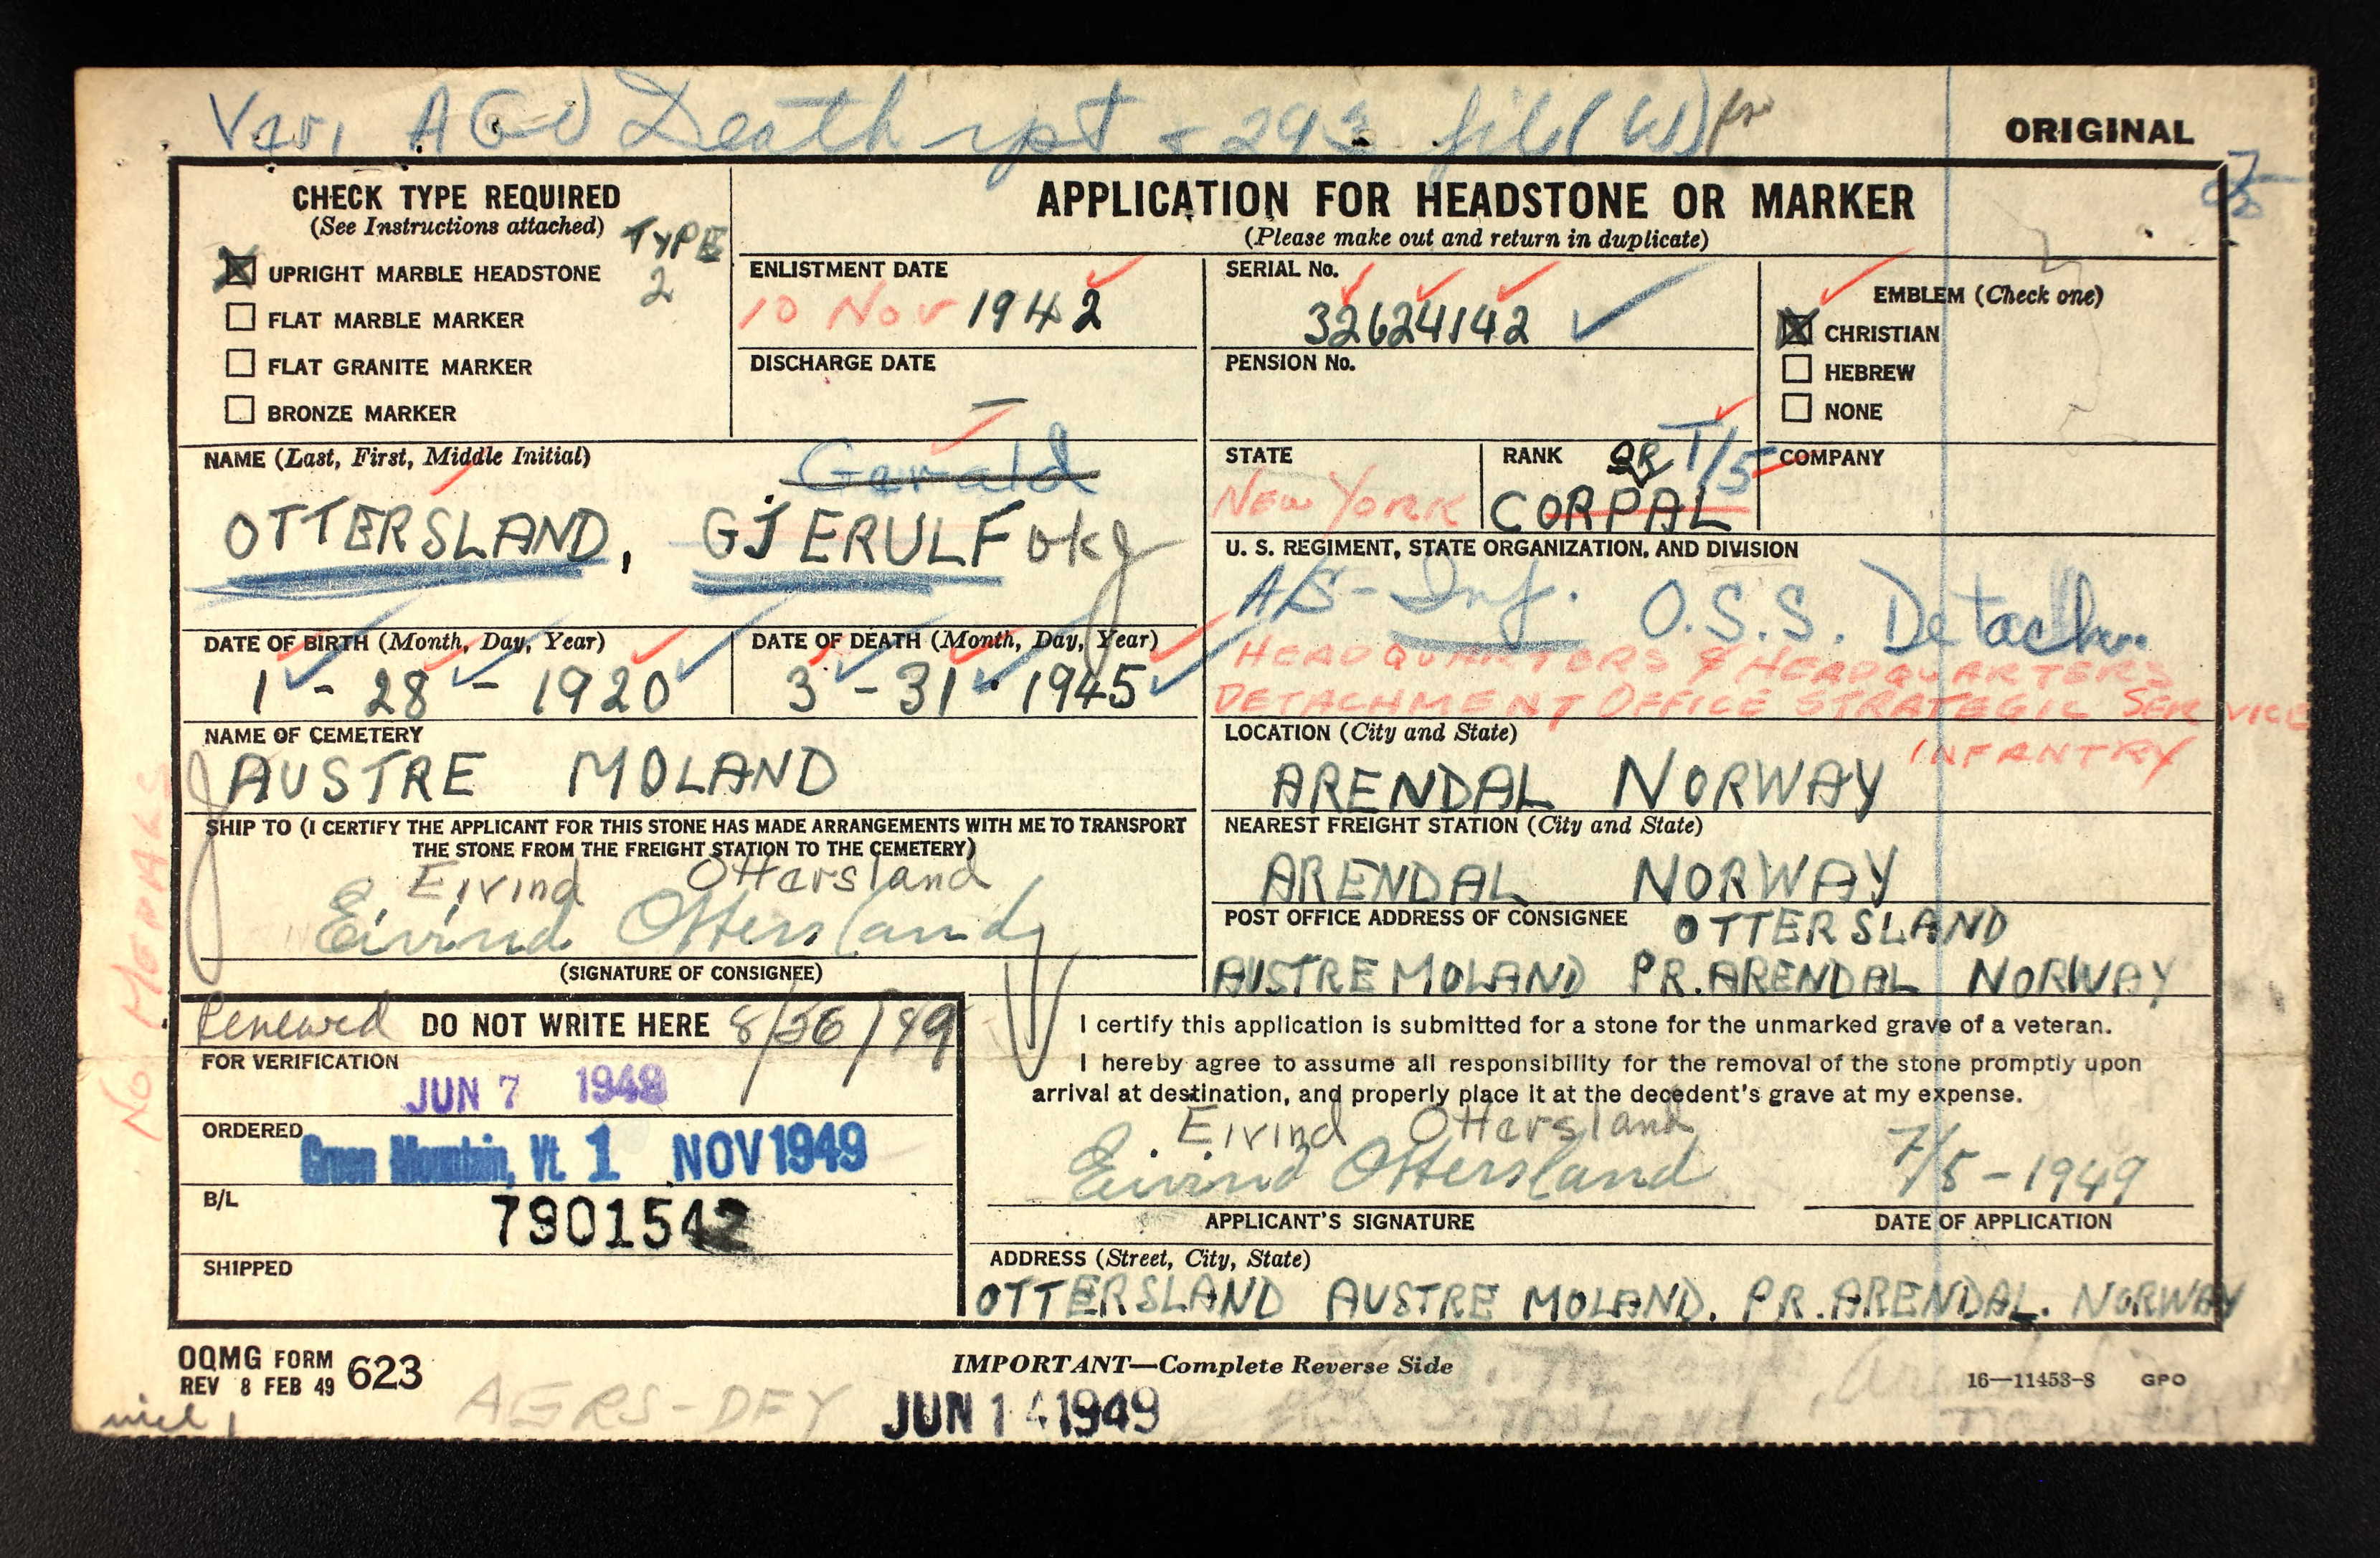 Ver. AGO Death rpt + 293 file (WS)
ORIGINAL
CHECK TYPE REQUIRED
(See Instructions attached)
TYPE 2
UPRIGHT MARBLE HEADSTONE
FLAT MARBLE MARKER
FLAT GRANITE MARKER
BRONZE MARKER
APPLICATION FOR HEADSTONE OR MARKER
(Please make out and return in duplicate)
ENLISTMENT DATE
10 NOV 1942
DISCHARGE DATE
SERIAL No.
32624142
PENSION No.
EMBLEM (Check one)
CHRISTIAN
HEBREW
NONE
NAME (Last, First, Middle Initial)
Gerald
OTTERSLAND, GJERULF OK
STATE
NEW YORK
RANK OR T/5
CORPAL
COMPANY
U. S. REGIMENT, STATE ORGANIZATION, AND DIVISION
A/S - Inf. O.S.S. Detach.
HEADQUARTORS & HEADQUARTERS
DETACHMENT OFFICE STRATEGIC SERVICE
INFANTRY
DATE OF BIRTH (Month, Day, Year)
1 - 28 - 1920
DATE OF DEATH (Month, Day, Year)
3 - 31 - 1945
NAME OF CEMETERY
AUSTRE MOLAND
LOCATION (City and State)
ARENDAL NORWAY
SHIP TO (I CERTIFY THE APPLICANT FOR THIS STONE HAS MADE ARRANGEMENTS WITH ME TO TRANSPORT
THE STONE FROM THE FREIGHT STATION TO THE CEMETERY)
Eivind Ottersland
Eivind Ottersland
(SIGNATURE OF CONSIGNEE)
NEAREST FREIGHT STATION (City and State)
ARENDAL NORWAY
POST OFFICE ADDRESS OF CONSIGNEE OTTERSLAND
AUSTRE MOLAND PR. ARENDAL NORWAY
NO MEDALS
DO NOT WRITE HERE 8/26/49
FOR VERIFICATION
JUN 7 1949
ORDERED
Green Mountain, Vt. 1 NOV 1949
B/L
7901542
SHIPPED
I certify this application is submitted for a stone for the unmarked grave of a veteran.
I hereby agree to assume all responsibility for the removal of the stone promptly upon
arrival at destination, and properly place it at the decedent's grave at my expense.
Eivind Ottersland
Eivind Ottersland
7/5 - 1949
APPLICANT'S SIGNATURE
DATE OF APPLICATION
ADDRESS (Street, City, State)
OTTERSLAND AUSTRE MOLAND. PR. ARENDAL. NORWAY
OQMG FORM 623
REV 8 FEB 49
IMPORTANT—Complete Reverse Side
16—11453-8 GPO
AGRS-DFY
JUN 14 1949